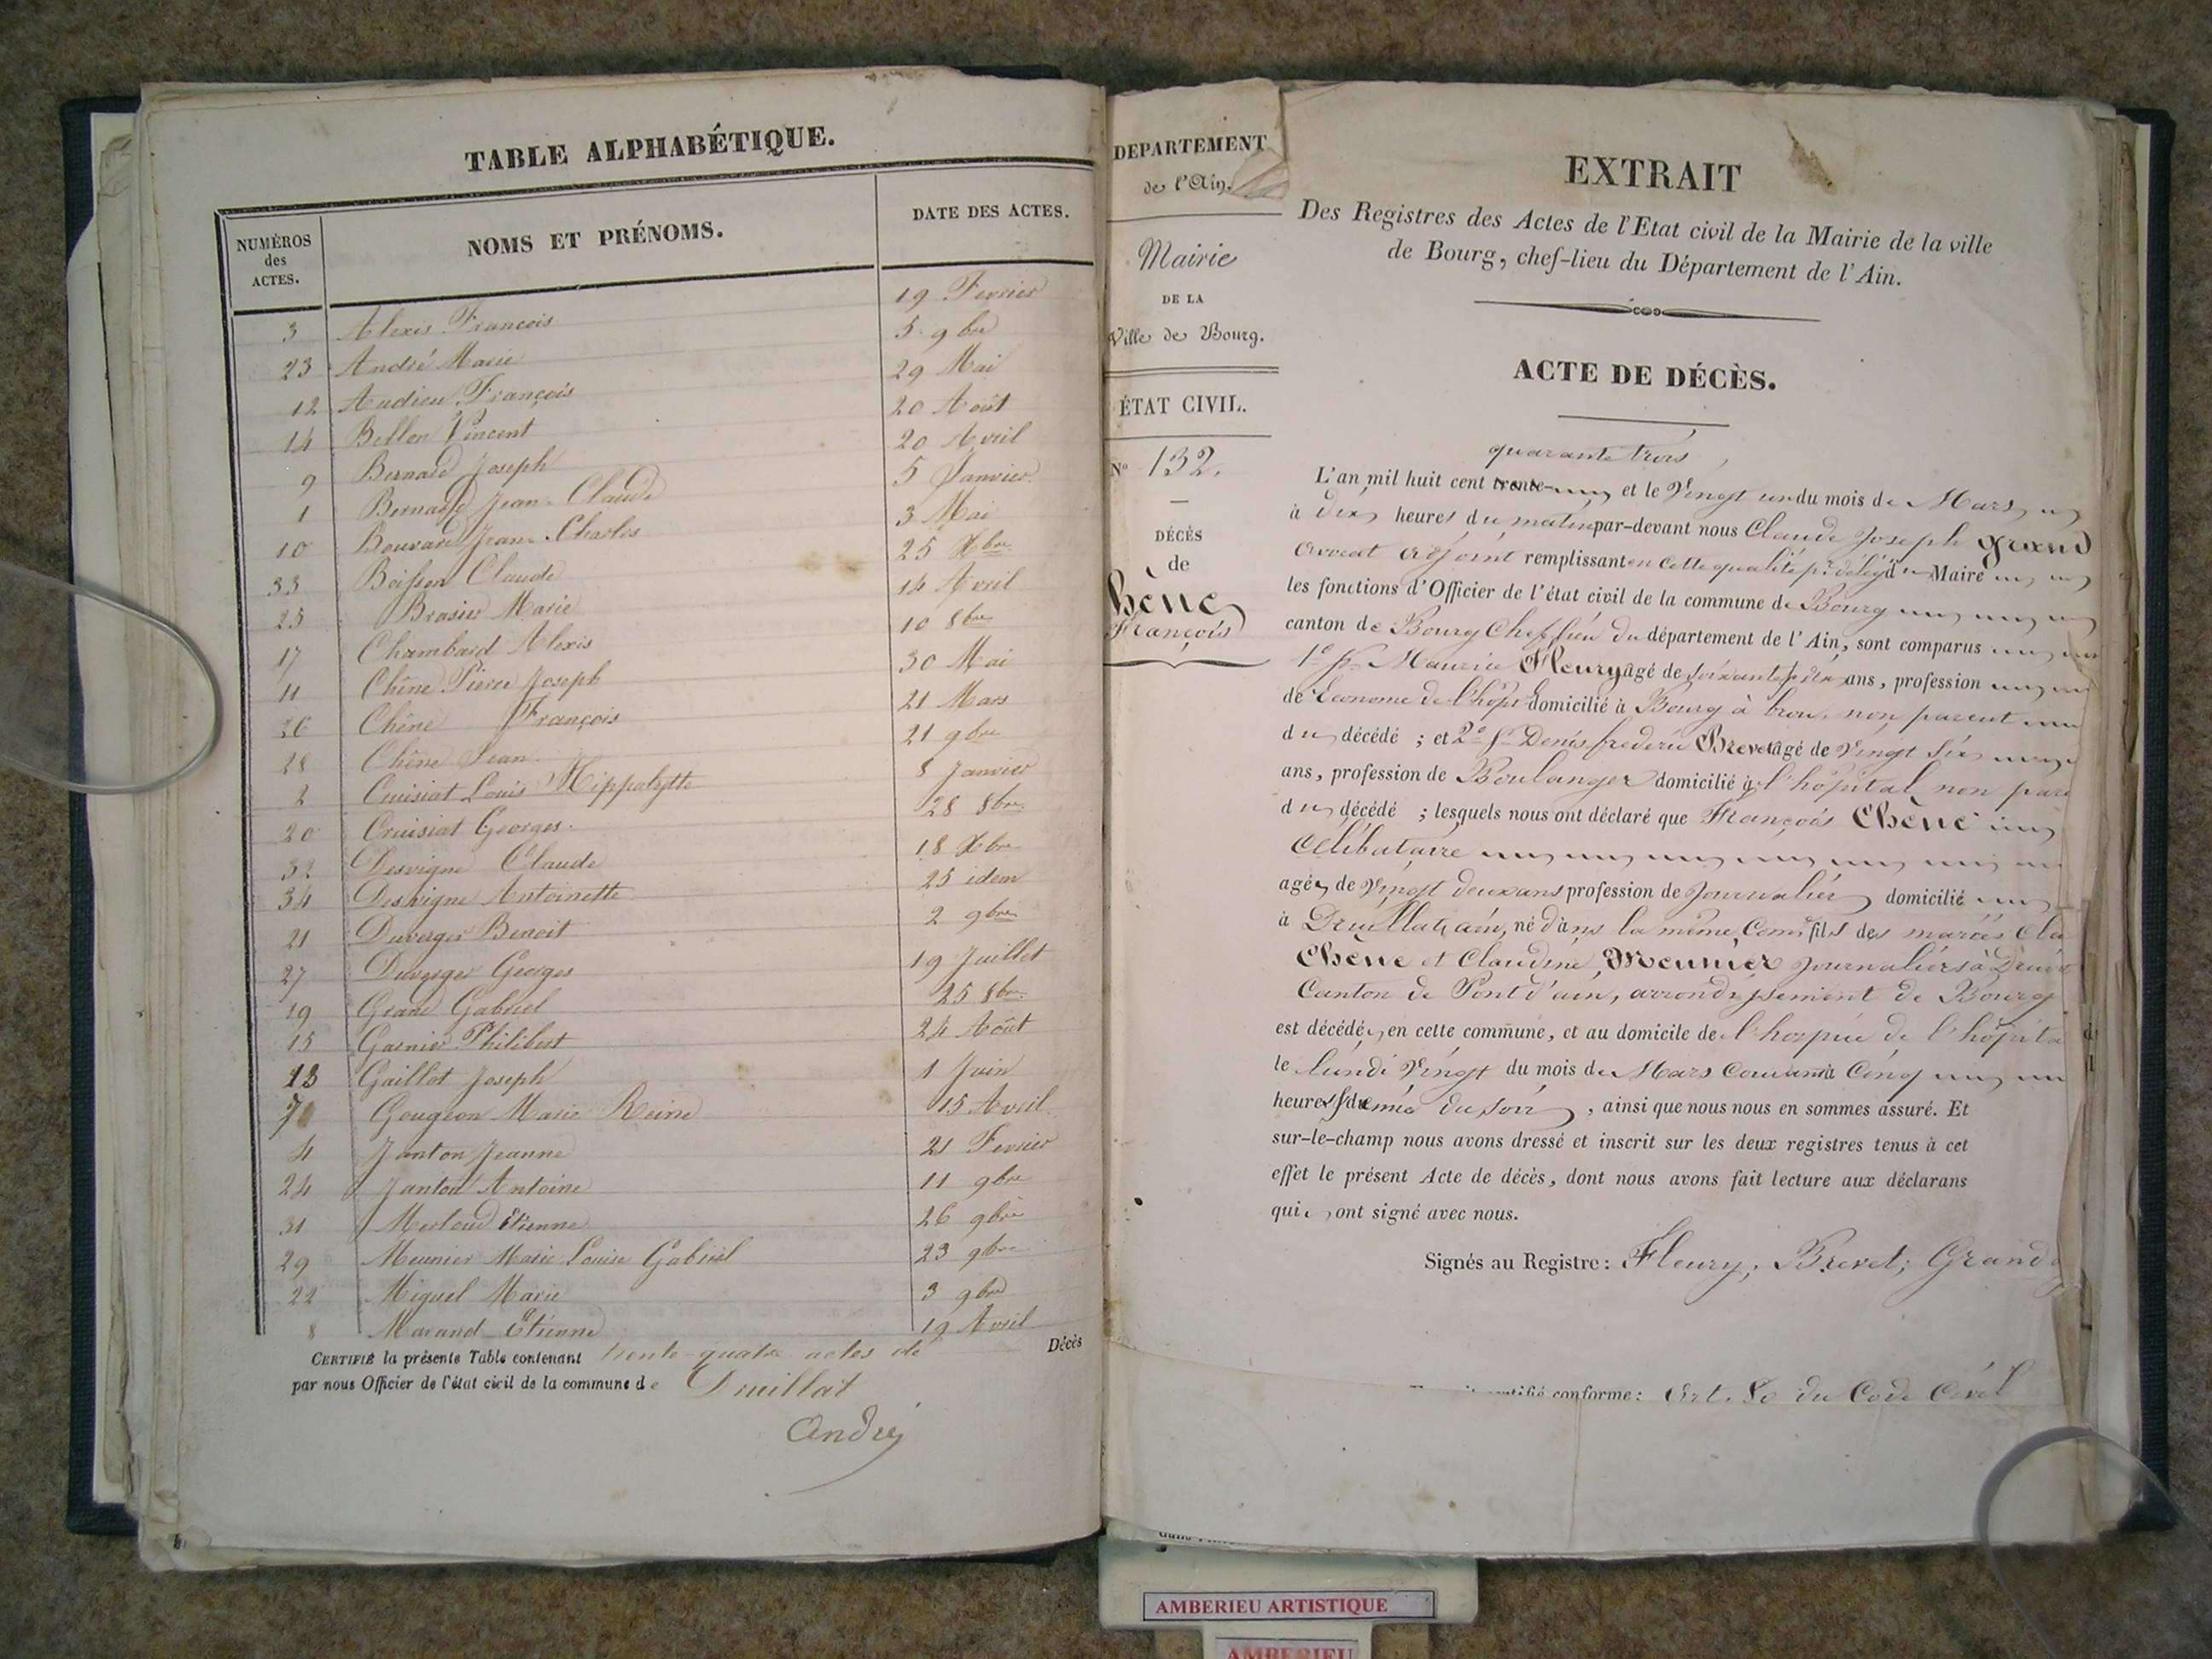 TABLE ALPHABÉTIQUE.
NUMÉROS des ACTES. NOMS ET PRÉNOMS. DATE DES ACTES.
3 Alexis François 19 Fevrier
23 André Marie 5 9bre
12 Audieu François 29 Mai
14 Bellon Vincent 20 Août
9 Bernard Joseph 20 Avril
1 Bernard Jean-Claude 5 Janvier
10 Bouvard Jean-Charles 3 Mai
33 Boisson Claude 25 Xbre
25 Brasier Marie 14 Avril
17 Chambard Alexis 10 8bre
11 Chêne Pierre Joseph 30 Mai
26 Chêne François 21 Mars
28 Chêne Jean 21 9bre
2 Cruisiat Louis Hippolytte 8 Janvier
20 Cruisiat Georges 28 8bre
32 Desvigne Claude 18 Xbre
34 Desvigne Antoinette 25 idem
21 Duverger Benoit 2 9bre
27 Duverger Georges 19 Juillet
19 Grand Gabriel 25 8bre
15 Garnier Philibert 24 Août
13 Gaillot Joseph 1 Juin
7 Gougeon Marie Reine 15 Avril
4 Janton Jeanne 21 Fevrier
24 Janton Antoine 11 9bre
31 Merloud Etienne 26 9bre
29 Meunier Marie Louise Gabriel 23 9bre
22 Miguel Marie 3 9bre
8 Marand Etienne 19 Avril
CERTIFIÉ la présente Table contenant trente-quatre actes de Décès
par nous Officier de l'état civil de la commune de Druillat
André
DEPARTEMENT
de l'Ain.
Mairie
DE LA
Ville de Bourg.
ÉTAT CIVIL.
N° 132.
DÉCÈS
de
Chêne
François
EXTRAIT
Des Registres des Actes de l'Etat civil de la Mairie de la ville
de Bourg, chef-lieu du Département de l'Ain.
ACTE DE DÉCÈS.
quarante trois
L'an mil huit cent trente- et le Vingt un du mois de Mars
à dix heures du matin par-devant nous Claude Joseph Grand
avocat adjoint remplissant en cette qualité pr délég.n du Maire
les fonctions d'Officier de l'état civil de la commune de Bourg
canton de Bourg Chef lieu du département de l'Ain, sont comparus
1° Sr Maurice Fleury âgé de soixante dix ans, profession
de Econome de l'hôpl domicilié à Bourg à brou, non parent
du décédé ; et 2° Sr Denis frederic Brevet âgé de Vingt Six
ans, profession de Boulanger domicilié à l'hôpital non pare
du décédé ; lesquels nous ont déclaré que François Chêne
Célibataire
agé de Vingt deux ans profession de Journalier domicilié
à Druillat, ain, né dans la même Comne fils des mariés Cla
Chêne et Claudine Meunier Journaliers à Druil
Canton de Pont d'ain, arrondissement de Bourg
est décédé, en cette commune, et au domicile de l'hospice de l'hôpita
le lundi Vingt du mois de Mars Courant à Cinq
heures & demie du soir, ainsi que nous nous en sommes assuré. Et
sur-le-champ nous avons dressé et inscrit sur les deux registres tenus à cet
effet le présent Acte de décès, dont nous avons fait lecture aux déclarans
qui ont signé avec nous.
Signés au Registre: Fleury; Brevet; Grand
conforme: Art. 80 du Code Civil
AMBERIEU ARTISTIQUE
AMBERIEU